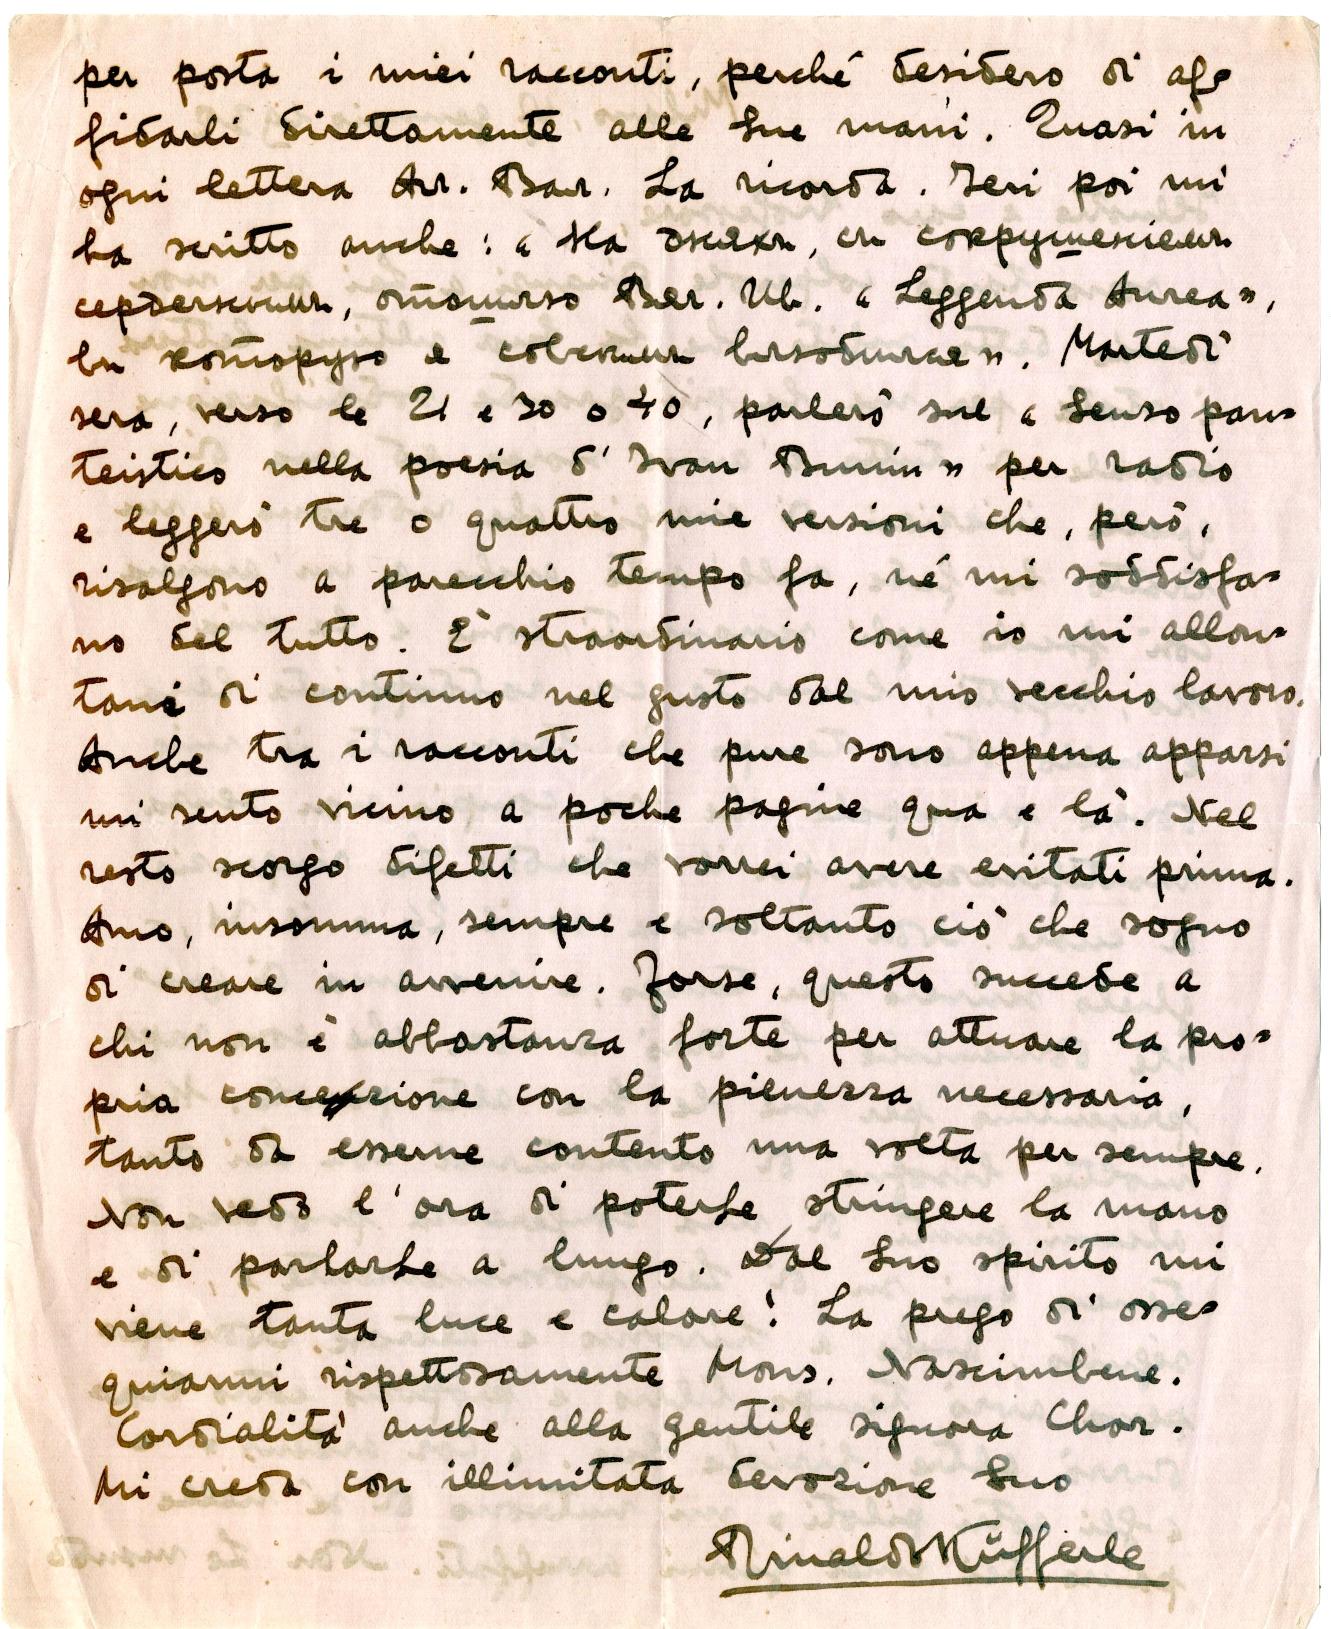 per posta i miei racconti, perché desidero di af=
fidarli direttamente alle Sue mani. Quasi in
ogni lettera La ricorda. Ieri poi mi
ha scritto anche: « На дняхъ, съ сокрушеніемъ
сердечнымъ, отошлю « Leggenda Aurea »,
въ которую я ». Martedì
sera, verso le 21 e 30 o 40, parlerò sul « Senso pan=
teistico nella poesia d' Ivan Bunin » per radio
e leggerò tre o quattro mie versioni che, però,
risalgono a parecchio tempo fa, né mi soddisfa=
no del tutto. È straordinario come io mi allon=
tani di continuo nel gusto dal mio vecchio lavoro.
Anche tra i racconti che pure sono appena apparsi
mi sento vicino a poche pagine qua e là. Nel
resto scorgo difetti che vorrei avere evitati prima.
Amo, insomma, sempre e soltanto ciò che sogno
di creare in avvenire. Forse, questo succede a
chi non è abbastanza forte per attuare la pro=
pria concezione con la pienezza necessaria,
tanto da esserne contento una volta per sempre.
Non vedo l'ora di poterLe stringere la mano
e di parlarLe a lungo. Dal Suo spirito mi
viene tanta luce e calore! La prego di osse=
quiarmi rispettosamente Mons. Nascimbene.
Cordialità anche alla gentile signora Chor.
Mi creda con illimitata devozione Suo
Rinaldo Küfferle